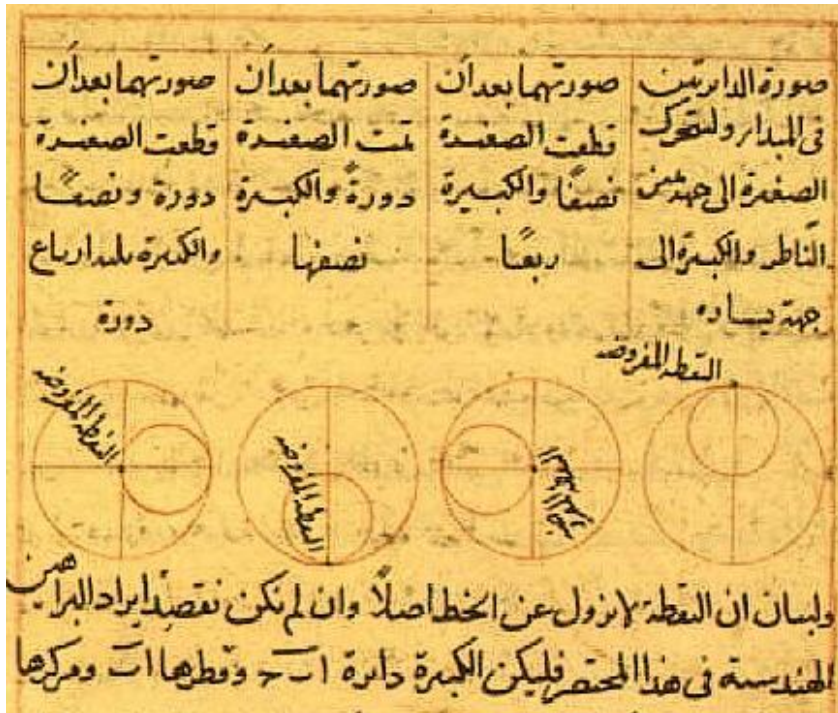 صورة الدايرتين
في المبدا ولتتحرك
الصغيرة الى جهة يمين
الناظر والكبيرة الى
جهة يساره
صورتهما بعد أن
قطعت الصغيرة
نصفًا والكبيرة
ربعًا
صورتهما بعد أن
تمت الصغيرة
دورةً والكبيرة
نصفها
صورتهما بعد أن
قطعت الصغيرة
دورة ونصفًا
والكبيرة ثلثة ارباع
دورة
النقطة المفروضة
النقطة المفروضة
النقطة المفروضة
النقطة المفروضة
ولبيان ان النقطة لا تزول عن الخط اصلاً وان لم نكن نقصد ايراد البراهين
الهندسية في هذا المختصر فليكن الكبيرة دائرة اب وقطرها اب ومركزها